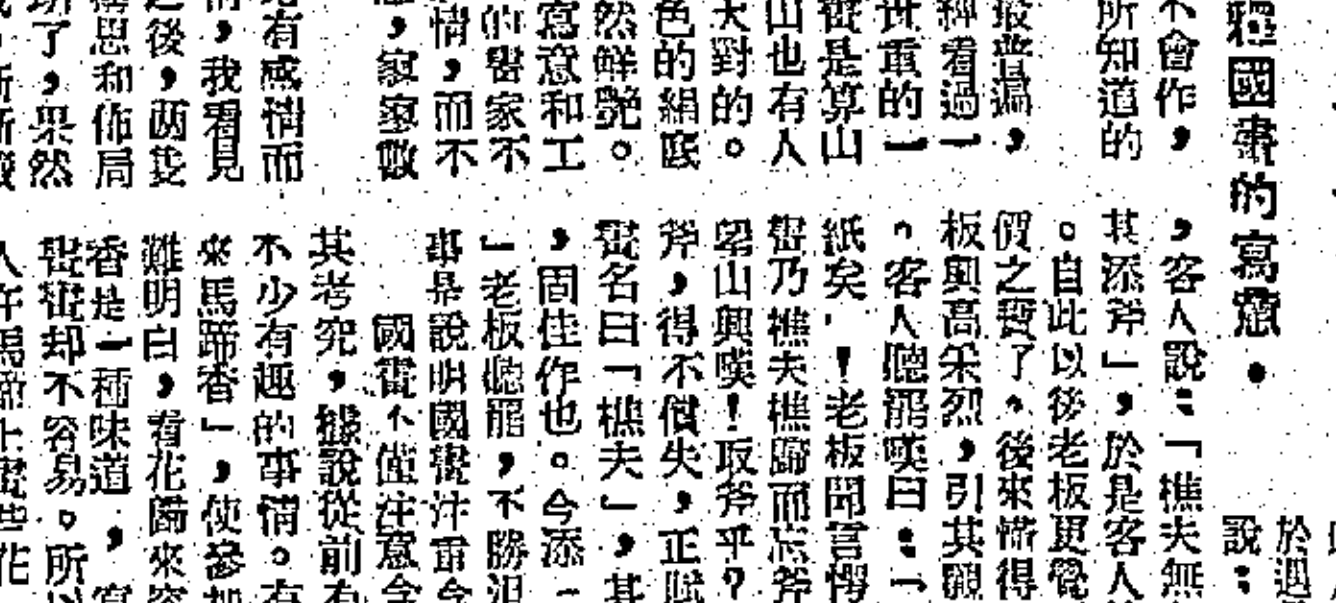 國畫的寫意
不會作，
所知道的
最普遍，
經看過一
貴重的一
畫是算山
山也有人
大對的。
色的絹底
然鮮艷。
寫意和工
的畫家不
情，而不
家家數
有感情而
，我看見
之後，兩
思和佈局
了，果然
，客人說：「樵夫無
其添斧」，於是客人
。自此以後老板更覺
價之寶了。後來慌得
板興高采烈，引其觀
。客人聽罷嘆曰：「
紙矣！老板聞言愕
畫乃樵夫樵歸而忘斧
望山興嘆！取斧乎？
斧，得不償失，正賦
畫名曰「樵夫」，其
，固佳作也。今添一
」老板聽罷，不勝沮
事是說明國畫注重含
國畫不僅注意含
其考究，據說從前有
不少有趣的事情。有
來馬蹄香」，使參加
難明白，看花歸來容
香是一種味道，寫
畫畫却不容易。所以
於遇
說：